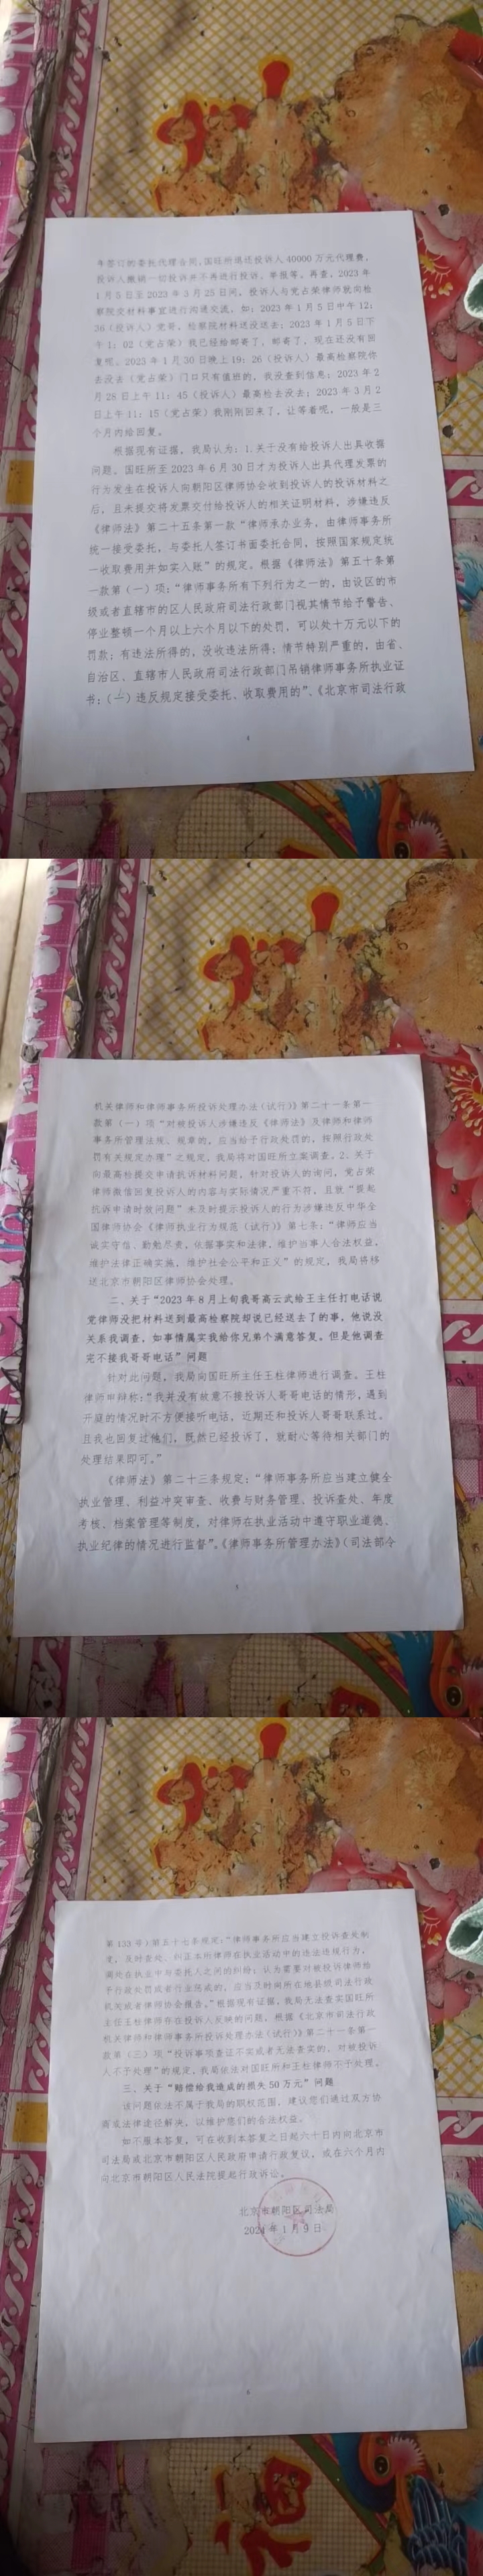 寿签订的委托代理合同,国旺所退还投诉人40000万元代理费,
投诉人撤销一切投诉并不再进行投诉、举报等。再查,2023年
1月5日至2023年3月25日间,投诉人与党占荣律师就向检
察院交材料事宜进行沟通交流。如:2023年1月5日中午12:
36(投诉人)党哥,检察院材料送没送去;2023年1月5日下
午1:02(党占荣)我已经给邮寄了,邮寄了,现在还没有回
复呢。2023年1月30日晚上19:26(投诉人)最高检察院你
去没去(党占荣)门口只有值班的,我没查到信息;2023年2
月28日上午11:45(投诉人)最高检去没去;2023年3月2
日上午11:15(党占荣)我刚刚回来了,让等着呢,一般是三
个月内给回复。
根据现有证据,我局认为:1.关于没有给投诉人出具收据
问题。国旺所至2023年6月30日才为投诉人出具代理发票的
行为发生在投诉人向朝阳区律师协会收到投诉人的投诉材料之
后,且未提交将发票交付给投诉人的相关证明材料,涉嫌违反
《律师法》第二十五条第一款“律师承办业务,由律师事务所
统一接受委托,与委托人签订书面委托合同,按照国家规定统
一收取费用并如实入账”的规定。根据《律师法》第五十条第
一款第(一)项:“律师事务所有下列行为之一的,由设区的市
级或者直辖市的区人民政府司法行政部门视其情节给予警告、
停业整顿一个月以上六个月以下的处罚,可以处十万元以下的
罚款;有违法所得的,没收违法所得;情节特别严重的,由省、
自治区、直辖市人民政府司法行政部门吊销律师事务所执业证
书:(一)违反规定接受委托、收取费用的”、《北京市司法行政
4
机关律师和律师事务所投诉处理办法(试行)》第二十一条第一
款第(一)项“对被投诉人涉嫌违反《律师法》及律师和律师
事务所管理法规、规章的,应当给予行政处罚的,按照行政处
罚有关规定办理”之规定,我局将对国旺所立案调查。2、关于
向最高检提交申请抗诉材料问题,针对投诉人的询问,党占荣
律师微信回复投诉人的内容与实际情况严重不符,且就“提起
抗诉申请时效问题”未及时提示投诉人的行为涉嫌违反中华全
国律师协会《律师执业行为规范(试行)》第七条:“律师应当
诚实守信、勤勉尽责,依据事实和法律,维护当事人合法权益,
维护法律正确实施,维护社会公平和正义”的规定,我局将移
送北京市朝阳区律师协会处理。
二、关于“2023年8月上旬我哥高云武给王主任打电话说
党律师没把材料送到最高检察院却说已经送去了的事,他说没
关系我调查,如事情属实我给你兄弟个满意答复。但是他调查
完不接我哥哥电话”问题
针对此问题,我局向国旺所主任王柱律师进行调查。王柱
律师申辩称:“我并没有故意不接投诉人哥哥电话的情形,遇到
开庭的情况时不方便接听电话,近期还和投诉人哥哥联系过。
且我也回复过他们,既然已经投诉了,就耐心等待相关部门的
处理结果即可。”
《律师法》第二十三条规定:“律师事务所应当建立健全
执业管理、利益冲突审查、收费与财务管理、投诉查处、年度
考核、档案管理等制度,对律师在执业活动中遵守职业道德、
执业纪律的情况进行监督”。《律师事务所管理办法》(司法部令
5
第133号)第五十七条规定:“律师事务所应当建立投诉查处制
度,及时查处、纠正本所律师在执业活动中的违法违规行为,
调处在执业中与委托人之间的纠纷;认为需要对被投诉律师给
予行政处罚或者行业惩戒的,应当及时向所在地县级司法行政
机关或者律师协会报告。”根据现有证据,我局无法查实国旺所
主任王柱律师存在投诉人反映的问题,根据《北京市司法行政
机关律师和律师事务所投诉处理办法(试行)》第二十一条第一
款第(三)项“投诉事项查证不实或者无法查实的,对被投诉
人不予处理”的规定,我局依法对国旺所和王柱律师不予处理。
三、关于“赔偿给我造成的损失50万元”问题
该问题依法不属于我局的职权范围,建议您们通过双方协
商或法律途径解决,以维护您们的合法权益。
如不服本答复,可在收到本答复之日起六十日内向北京市
司法局或北京市朝阳区人民政府申请行政复议,或在六个月内
向北京市朝阳区人民法院提起行政诉讼。
北京市朝阳区司法局
2024年1月9日
6